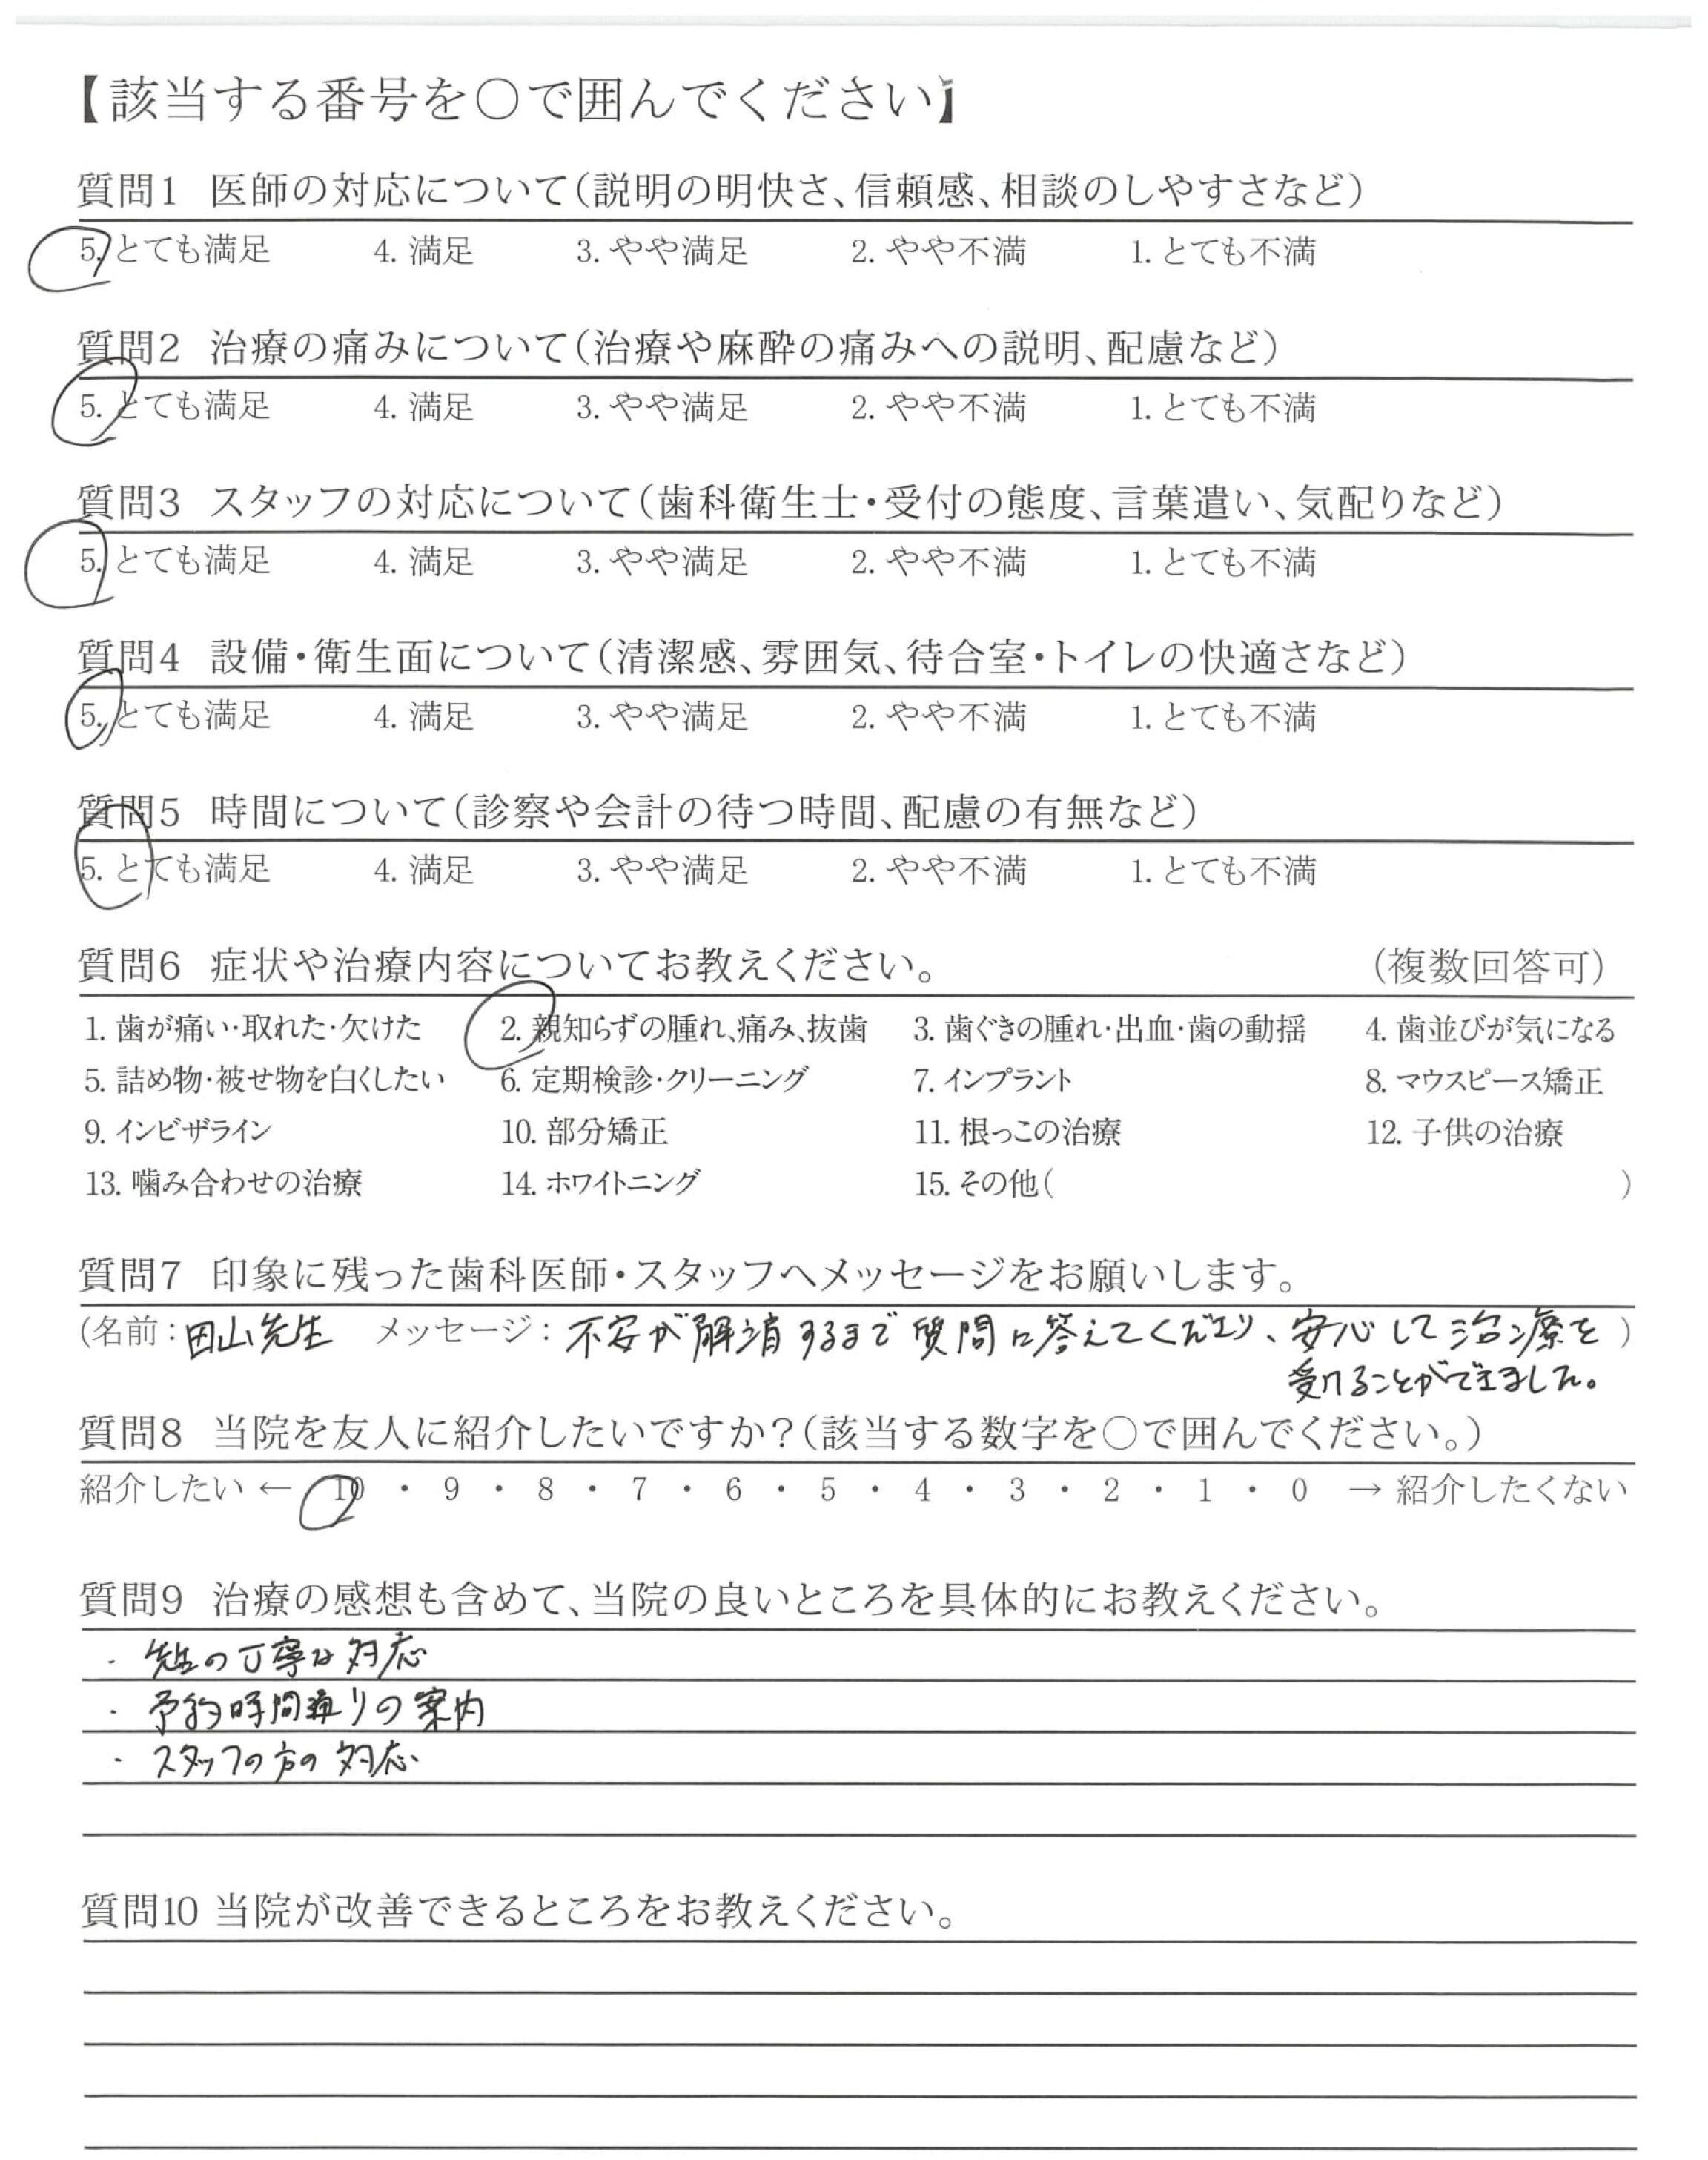 【該当する番号を○で囲んでください】
質問1 医師の対応について（説明の明快さ、信頼感、相談のしやすさなど）
5. とても満足 4. 満足 3. やや満足 2. やや不満 1. とても不満
質問2 治療の痛みについて（治療や麻酔の痛みへの説明、配慮など）
5. とても満足 4. 満足 3. やや満足 2. やや不満 1. とても不満
質問3 スタッフの対応について（歯科衛生士・受付の態度、言葉遣い、気配りなど）
5. とても満足 4. 満足 3. やや満足 2. やや不満 1. とても不満
質問4 設備・衛生面について（清潔感、雰囲気、待合室・トイレの快適さなど）
5. とても満足 4. 満足 3. やや満足 2. やや不満 1. とても不満
質問5 時間について（診察や会計の待つ時間、配慮の有無など）
5. とても満足 4. 満足 3. やや満足 2. やや不満 1. とても不満
質問6 症状や治療内容についてお教えください。 （複数回答可）
1. 歯が痛い・取れた・欠けた 2. 親知らずの腫れ、痛み、抜歯 3. 歯ぐきの腫れ・出血・歯の動揺 4. 歯並びが気になる
5. 詰め物・被せ物を白くしたい 6. 定期検診・クリーニング 7. インプラント 8. マウスピース矯正
9. インビザライン 10. 部分矯正 11. 根っこの治療 12. 子供の治療
13. 噛み合わせの治療 14. ホワイトニング 15. その他（ ）
質問7 印象に残った歯科医師・スタッフへメッセージをお願いします。
（名前：田山先生 メッセージ：不安が解消するまで質問に答えてくださり、安心して治療を）
受けることができました。
質問8 当院を友人に紹介したいですか？（該当する数字を○で囲んでください。）
紹介したい ← 10 ・ 9 ・ 8 ・ 7 ・ 6 ・ 5 ・ 4 ・ 3 ・ 2 ・ 1 ・ 0 → 紹介したくない
質問9 治療の感想も含めて、当院の良いところを具体的にお教えください。
・ 先生の丁寧な対応
・ 予約時間通りの案内
・ スタッフの方の対応
質問10 当院が改善できるところをお教えください。